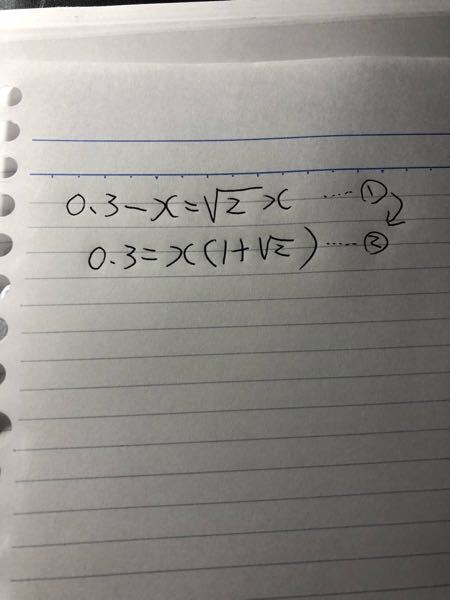 0.3-x=√2x ……①
0.3=x(1+√2) ……②